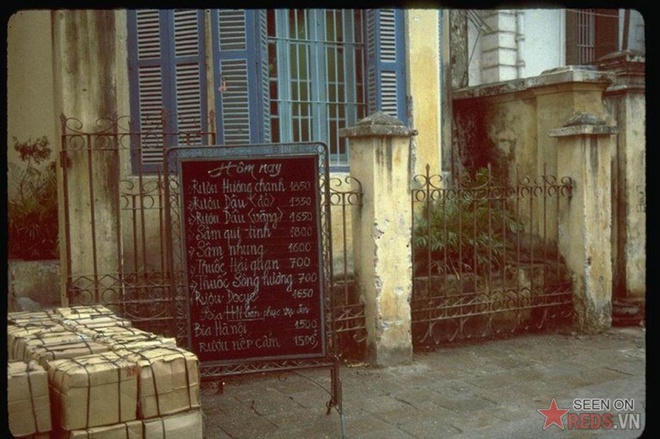 Hôm nay
Rượu Hương chanh 1850
Rượu Dâu (đỏ) 1350
Rượu Dâu (vàng) 1650
Sâm qui tinh 1800
Sâm nhung 1600
Thuốc Hải quan 700
Thuốc Sông hương 700
Rượu 1650
Bia HN bán phục vụ
Bia Hà nội 1500
RƯỢU NẾP CẨM 1500
SEEN ON
REDS.VN